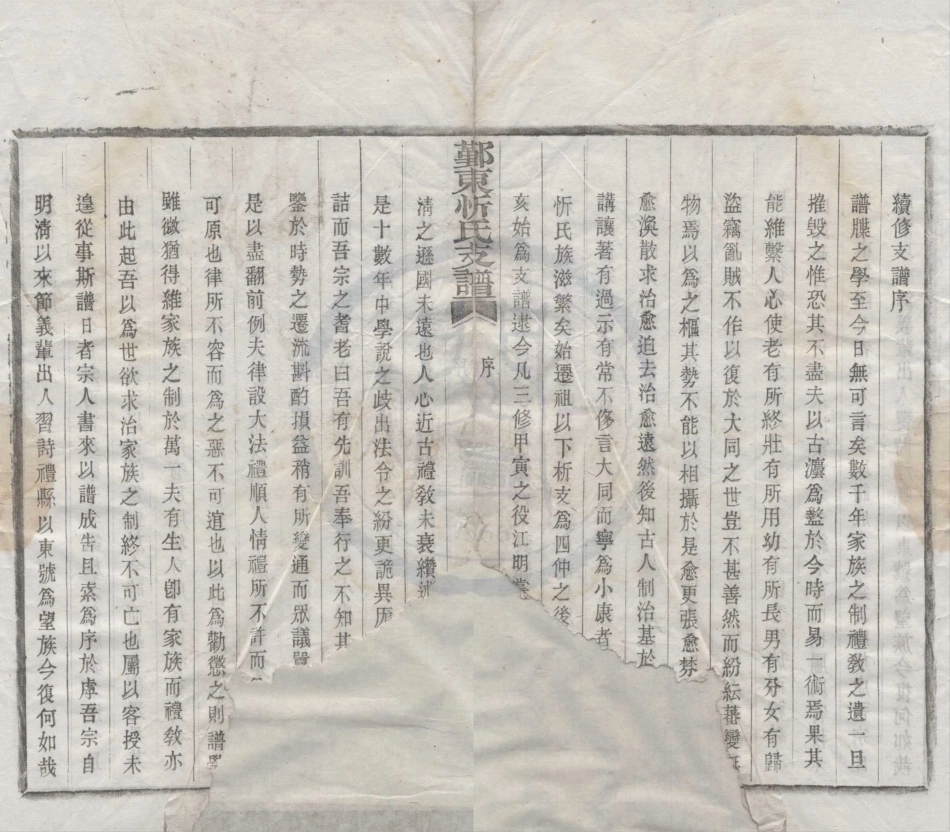 續修支譜序
譜牒之學至今日無可言矣數千年家族之制禮敎之遺一旦
摧毀之惟恐其不盡夫以古灋爲盭於今時而易一術焉果其
能維繫人心使老有所終壯有所用幼有所長男有分女有歸
盜竊亂賊不作以復於大同之世豈不甚善然而紛紜蕃變
物焉以爲之樞其勢不能以相攝於是愈更張愈棼
愈渙散求治愈迫去治愈遠然後知古人制治基於
講讓著有過示有常不侈言大同而寧爲小康者
忻氏族滋繁矣始遷祖以下析支爲四仲之後
亥始爲支譜逮今凡三修甲寅之役江明
鄞東忻氏支譜
序
淸之遜國未遠也人心近古禮敎未衰纘
是十數年中學說之歧出法令之紛更詭異
詰而吾宗之耆老曰吾有先訓吾奉行之不知其
鑒於時勢之遷流斟酌損益稍有所變通而眾議
是以盡翻前例夫律設大法禮順人情禮所不許而
可原也律所不容而爲之惡不可逭也以此爲勸懲之則譜
雖微猶得維家族之制於萬一夫有生人卽有家族而禮敎亦
由此起吾以爲世欲求治家族之制終不可亡也屬以客授未
遑從事斯譜日者宗人書來以譜成告且索爲序於虖吾宗自
明淸以來節義輩出人習詩禮縣以東號爲望族今復何如哉